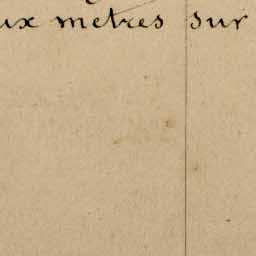 ux metres sur